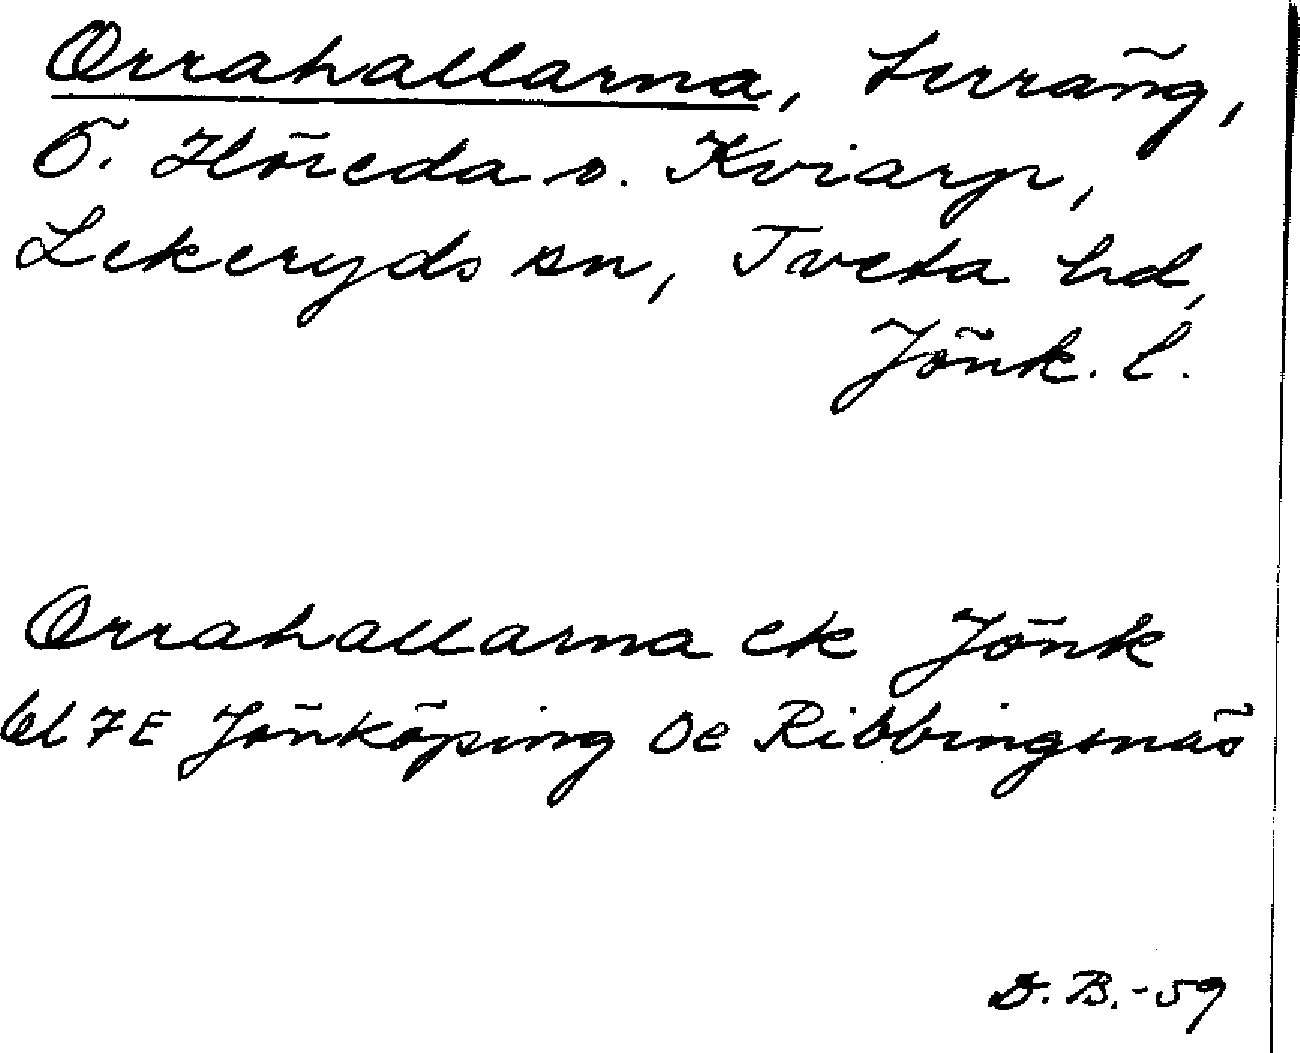 Orrahallarna, terräng,
Ö. Höreda o. Kviarp,
Lekeryds sn, Tveta hd,
Jönk. l.
Orrahallarna ek Jönk
bl 7E Jönköping 0e Ribbingsnäs
D.B.-59